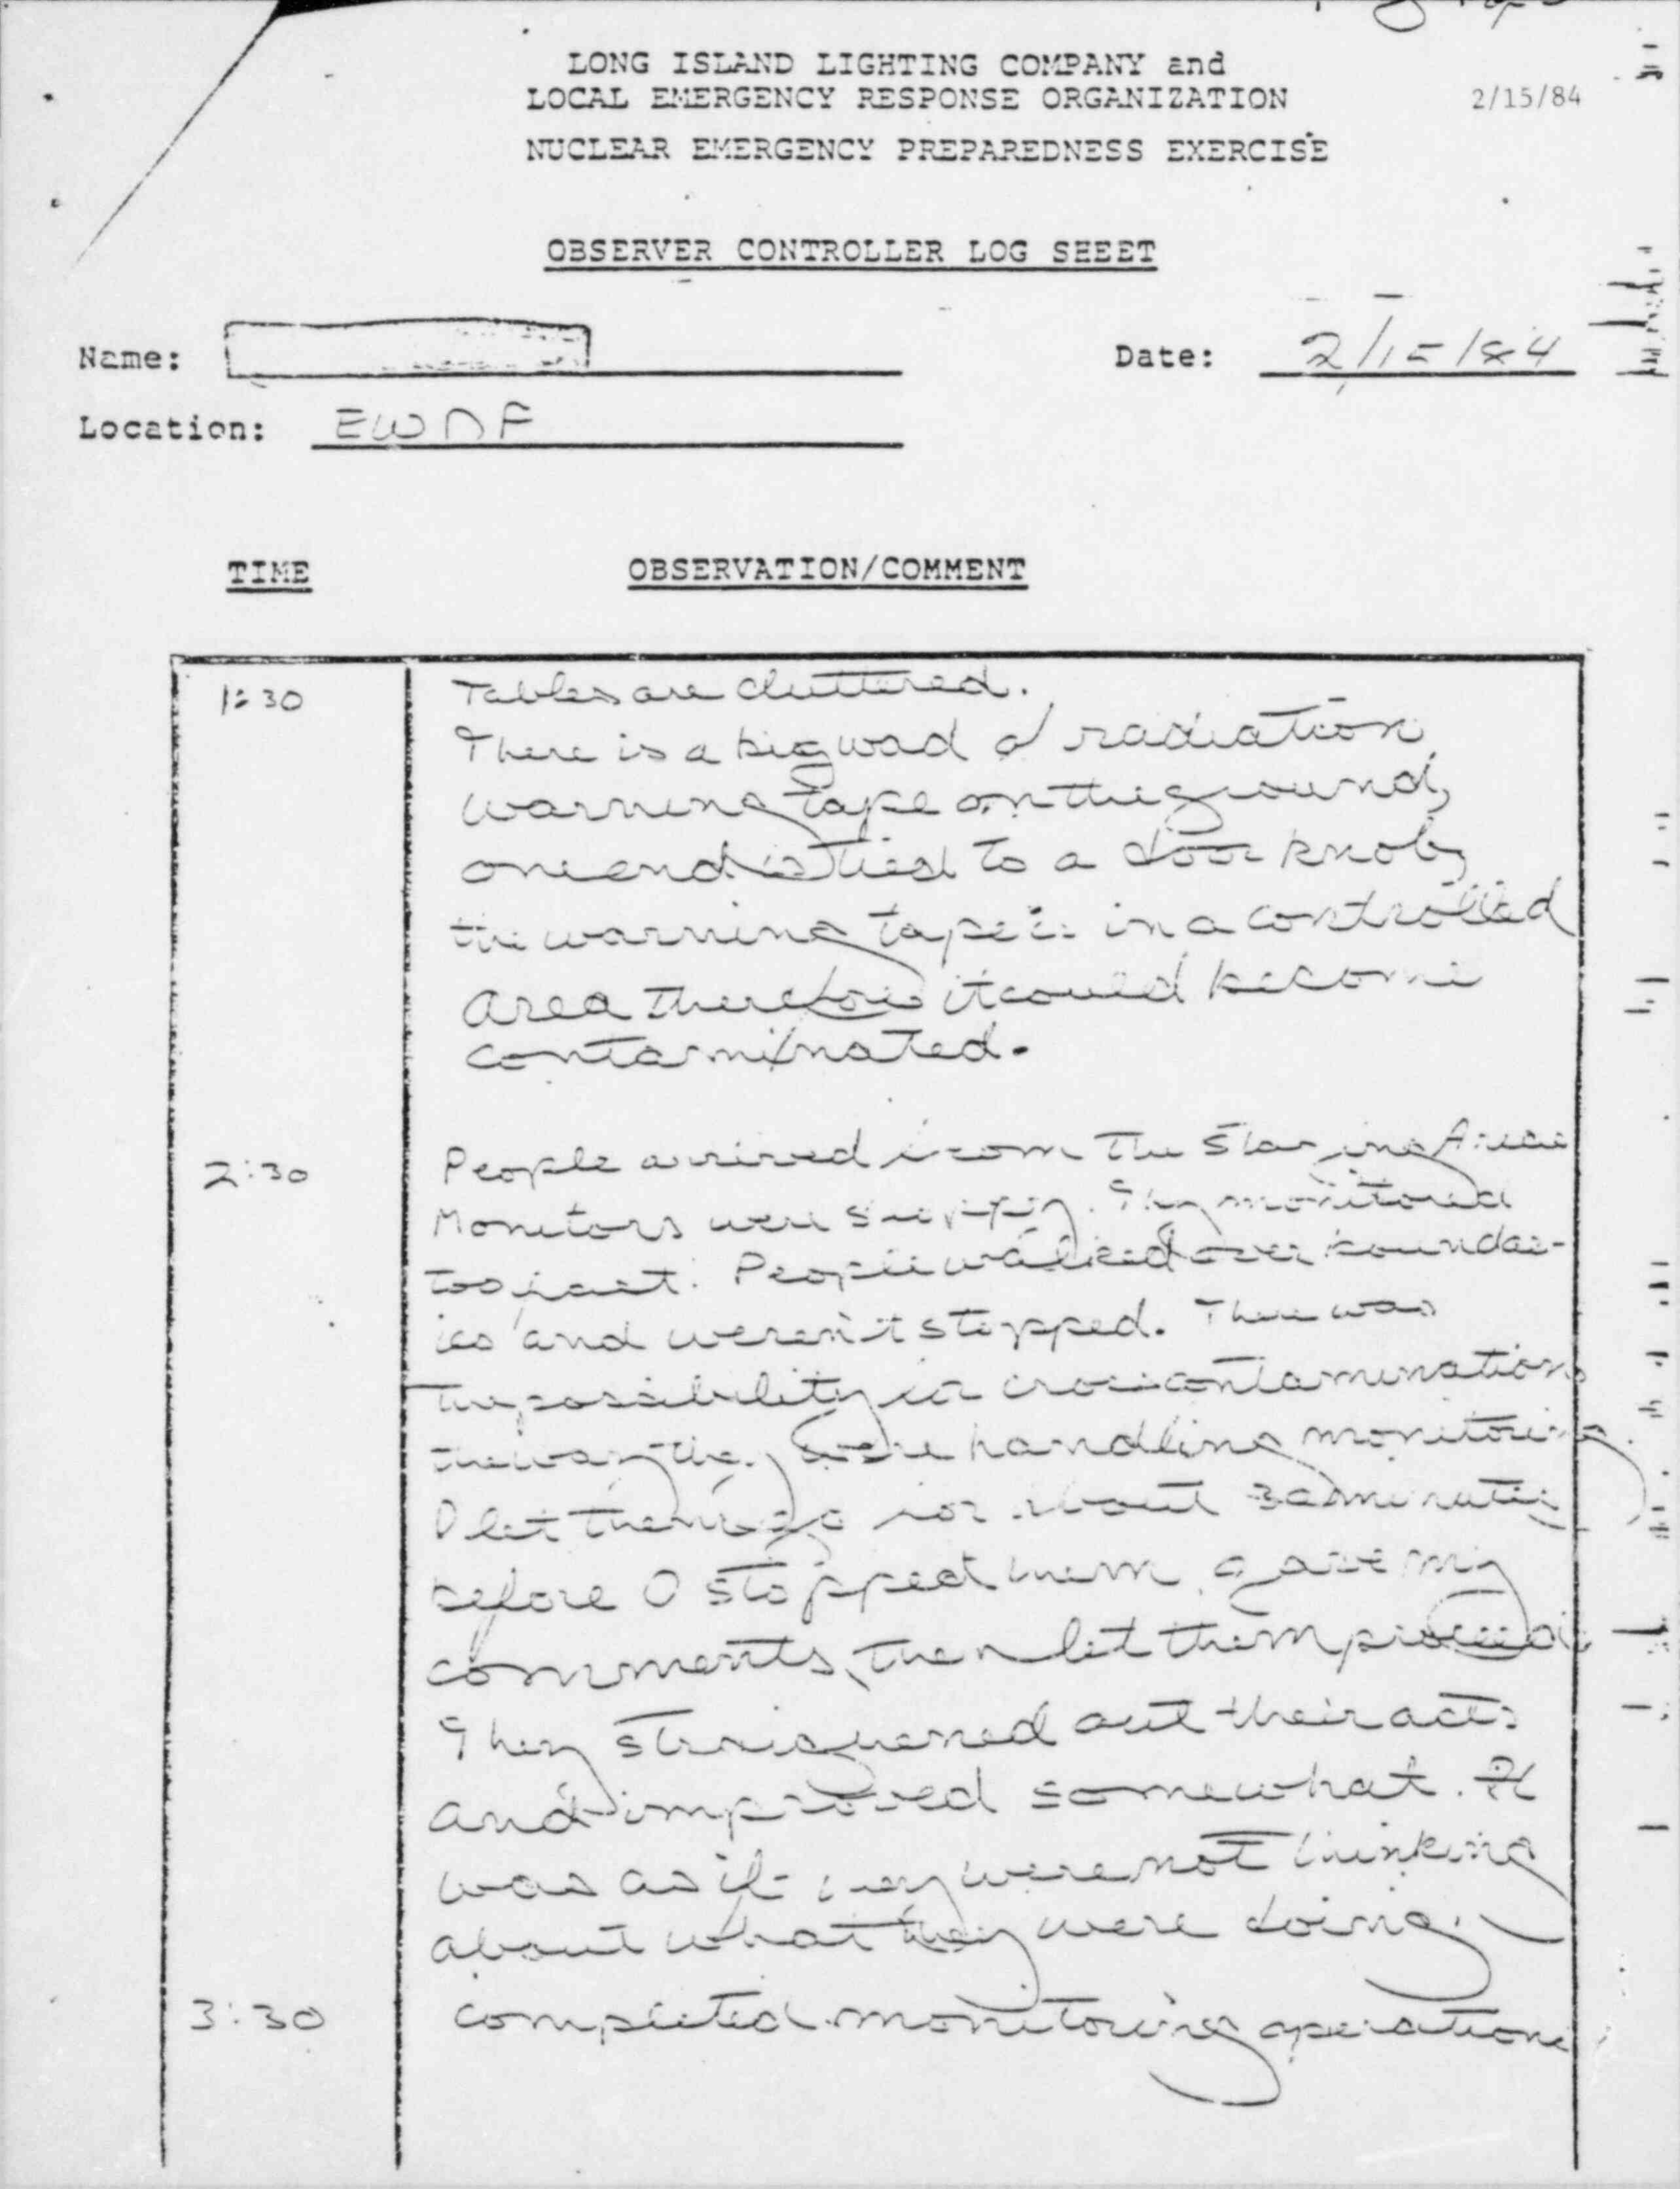 LONG ISLAND LIGHTING COMPANY and
LOCAL EMERGENCY RESPONSE ORGANIZATION 2/15/84
NUCLEAR EMERGENCY PREPAREDNESS EXERCISE
OBSERVER CONTROLLER LOG SHEET
Name: Date: 2/15/84
Location: EWDF
TIME OBSERVATION/COMMENT
1:30 Tables are cluttered.
There is a big wad of radiation
warning tape on the ground,
one end is tied to a door knob,
the warning tape is in a controlled
area therefore it could become
contaminated.
2:30 People arrived from the Staging Areas
Monitors were sloppy. They monitored
too fast. People walked over boundar-
ies and weren't stopped. There was
the possibility for cross contamination
the way they were handling monitoring.
I let them go for about minutes
before I stopped them, gave my
comments, then let them proceed.
They straightened out their acts
and improved somewhat. It
was as if they were not thinking
about what they were doing.
3:30 completed monitoring operations